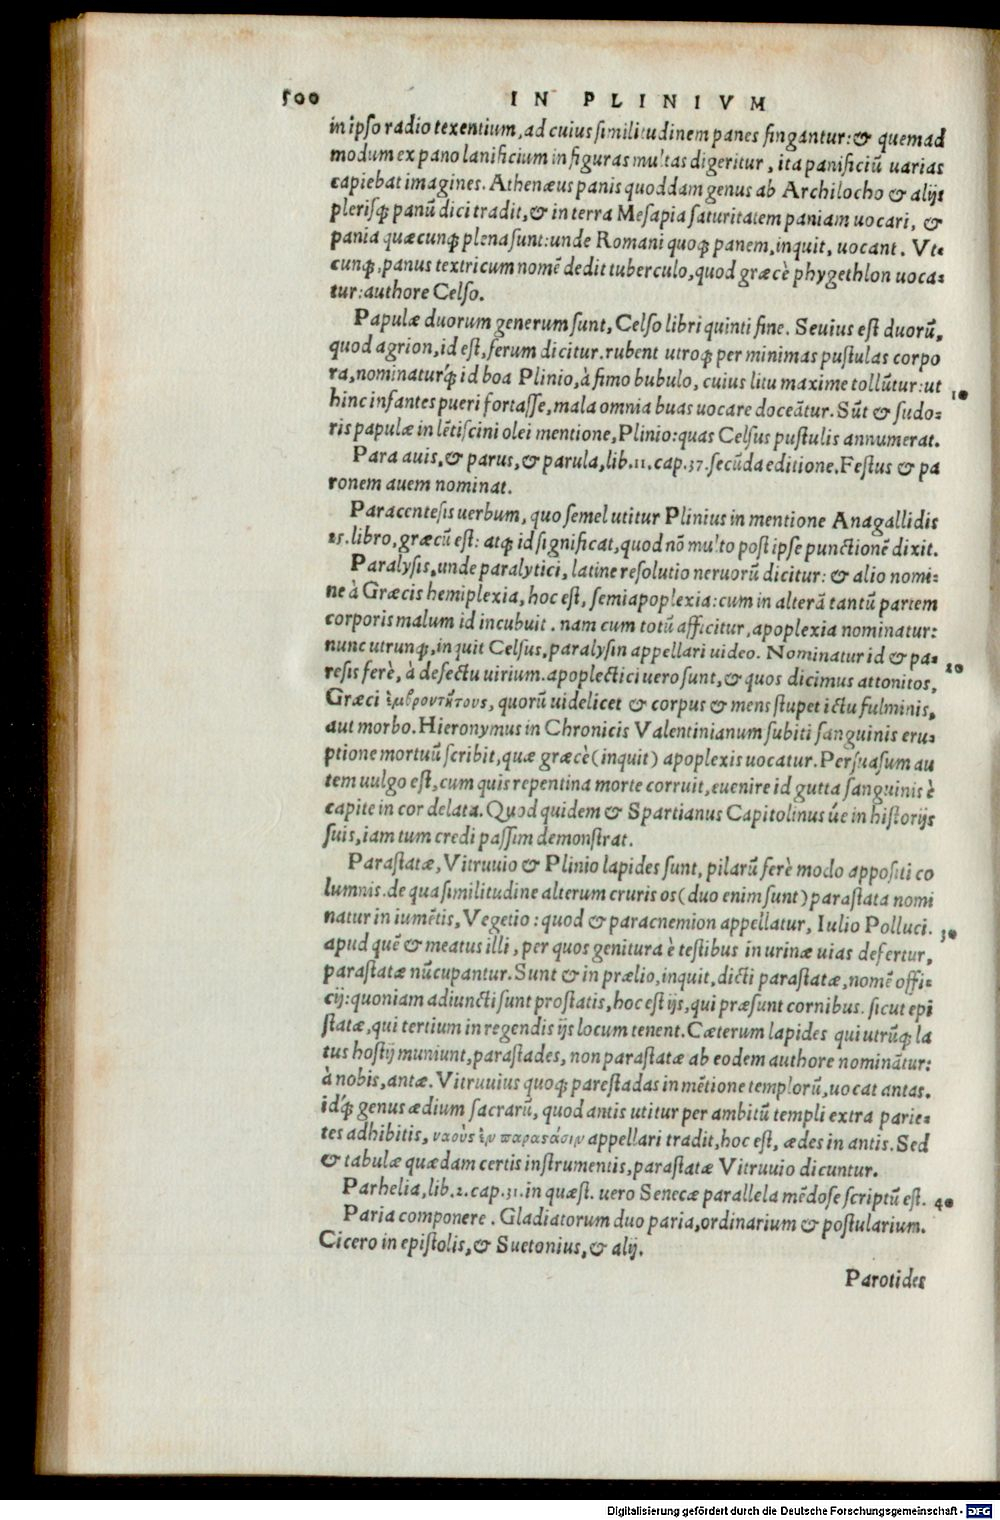 500 IN PLINIVM
in ipso radio texentium, ad cuius similitudinem panes fingantur: & quemad
modum ex pano lanificium in figuras multas digeritur, ita panificiū uarias
capiebat imagines. Athenæus panis quoddam genus ab Archilocho & alijs
plerisq; panū dici tradit, & in terra Mesapia saturitatem paniam uocari, &
pania quæcunq; plena sunt: unde Romani quoq; panem, inquit, uocant. Vt-
cunq;, panus textricum nomē dedit tuberculo, quod græcè phygethlon uoca-
tur: authore Celso.
Papulæ duorum generum sunt, Celso libri quinti fine. Seuius est duorū,
quod agrion, id est, ferum dicitur. rubent utroq; per minimas pustulas corpo
ra, nominaturq́; id boa Plinio, à fimo bubulo, cuius litu maxime tollūtur: ut 10
hinc infantes pueri fortasse, mala omnia buas uocare doceātur. Sūt & sudo-
ris papulæ in lētiscini olei mentione, Plinio: quas Celsus pustulis annumerat.
Para auis, & parus, & parula, lib. 11. cap. 37. secūda editione. Festus & pa
ronem auem nominat.
Paracentesis uerbum, quo semel utitur Plinius in mentione Anagallidis
25. libro, græcū est: atq; id significat, quod nō multo post ipse punctionē dixit.
Paralysis, unde paralytici, latine resolutio neruorū dicitur: & alio nomi-
ne à Græcis hemiplexia, hoc est, semiapoplexia: cum in alterā tantū partem
corporis malum id incubuit. nam cum totū afficitur, apoplexia nominatur:
nunc utrunq;, inquit Celsus, paralysin appellari uideo. Nominatur id & pa- 20
resis ferè, à defectu uirium. apoplectici uero sunt, & quos dicimus attonitos,
Græci ἐμβροντήτους, quorū uidelicet & corpus & mens stupet ictu fulminis,
aut morbo. Hieronymus in Chronicis Valentinianum subiti sanguinis eru-
ptione mortuū scribit, quæ græcè (inquit) apoplexis uocatur. Persuasum au
tem uulgo est, cum quis repentina morte corruit, euenire id gutta sanguinis è
capite in cor delata. Quod quidem & Spartianus Capitolinus úe in historijs
suis, iam tum credi passim demonstrat.
Parastatæ, Vitruuio & Plinio lapides sunt, pilarū ferè modo appositi co
lumnis. de qua similitudine alterum cruris os (duo enim sunt) parastata nomi
natur in iumētis, Vegetio: quod & paracnemion appellatur, Iulio Polluci. 30
apud quē & meatus illi, per quos genitura è testibus in urinæ uias defertur,
parastatæ nūcupantur. Sunt & in prælio, inquit, dicti parastatæ, nomē offi-
cij: quoniam adiuncti sunt prostatis, hoc est ijs, qui præsunt cornibus. sicut epi
statæ, qui tertium in regendis ijs locum tenent. Cæterum lapides qui utrūq; la
tus hostij muniunt, parastades, non parastatæ ab eodem authore nominātur:
à nobis, antæ. Vitruuius quoq; parestadas in mētione templorū, uocat antas.
idq́; genus ædium sacrarū, quod antis utitur per ambitū templi extra parie-
tes adhibitis, ναοὺς ἐν παραστάσιν appellari tradit, hoc est, ædes in antis. Sed
& tabulæ quædam certis instrumentis, parastatæ Vitruuio dicuntur.
Parhelia, lib. 2. cap. 31. in quæst. uero Senecæ parallela mēdose scriptū est. 40
Paria componere. Gladiatorum duo paria, ordinarium & postularium.
Cicero in epistolis, & Suetonius, & alij.
Parotides
Digitalisierung gefördert durch die Deutsche Forschungsgemeinschaft - DFG